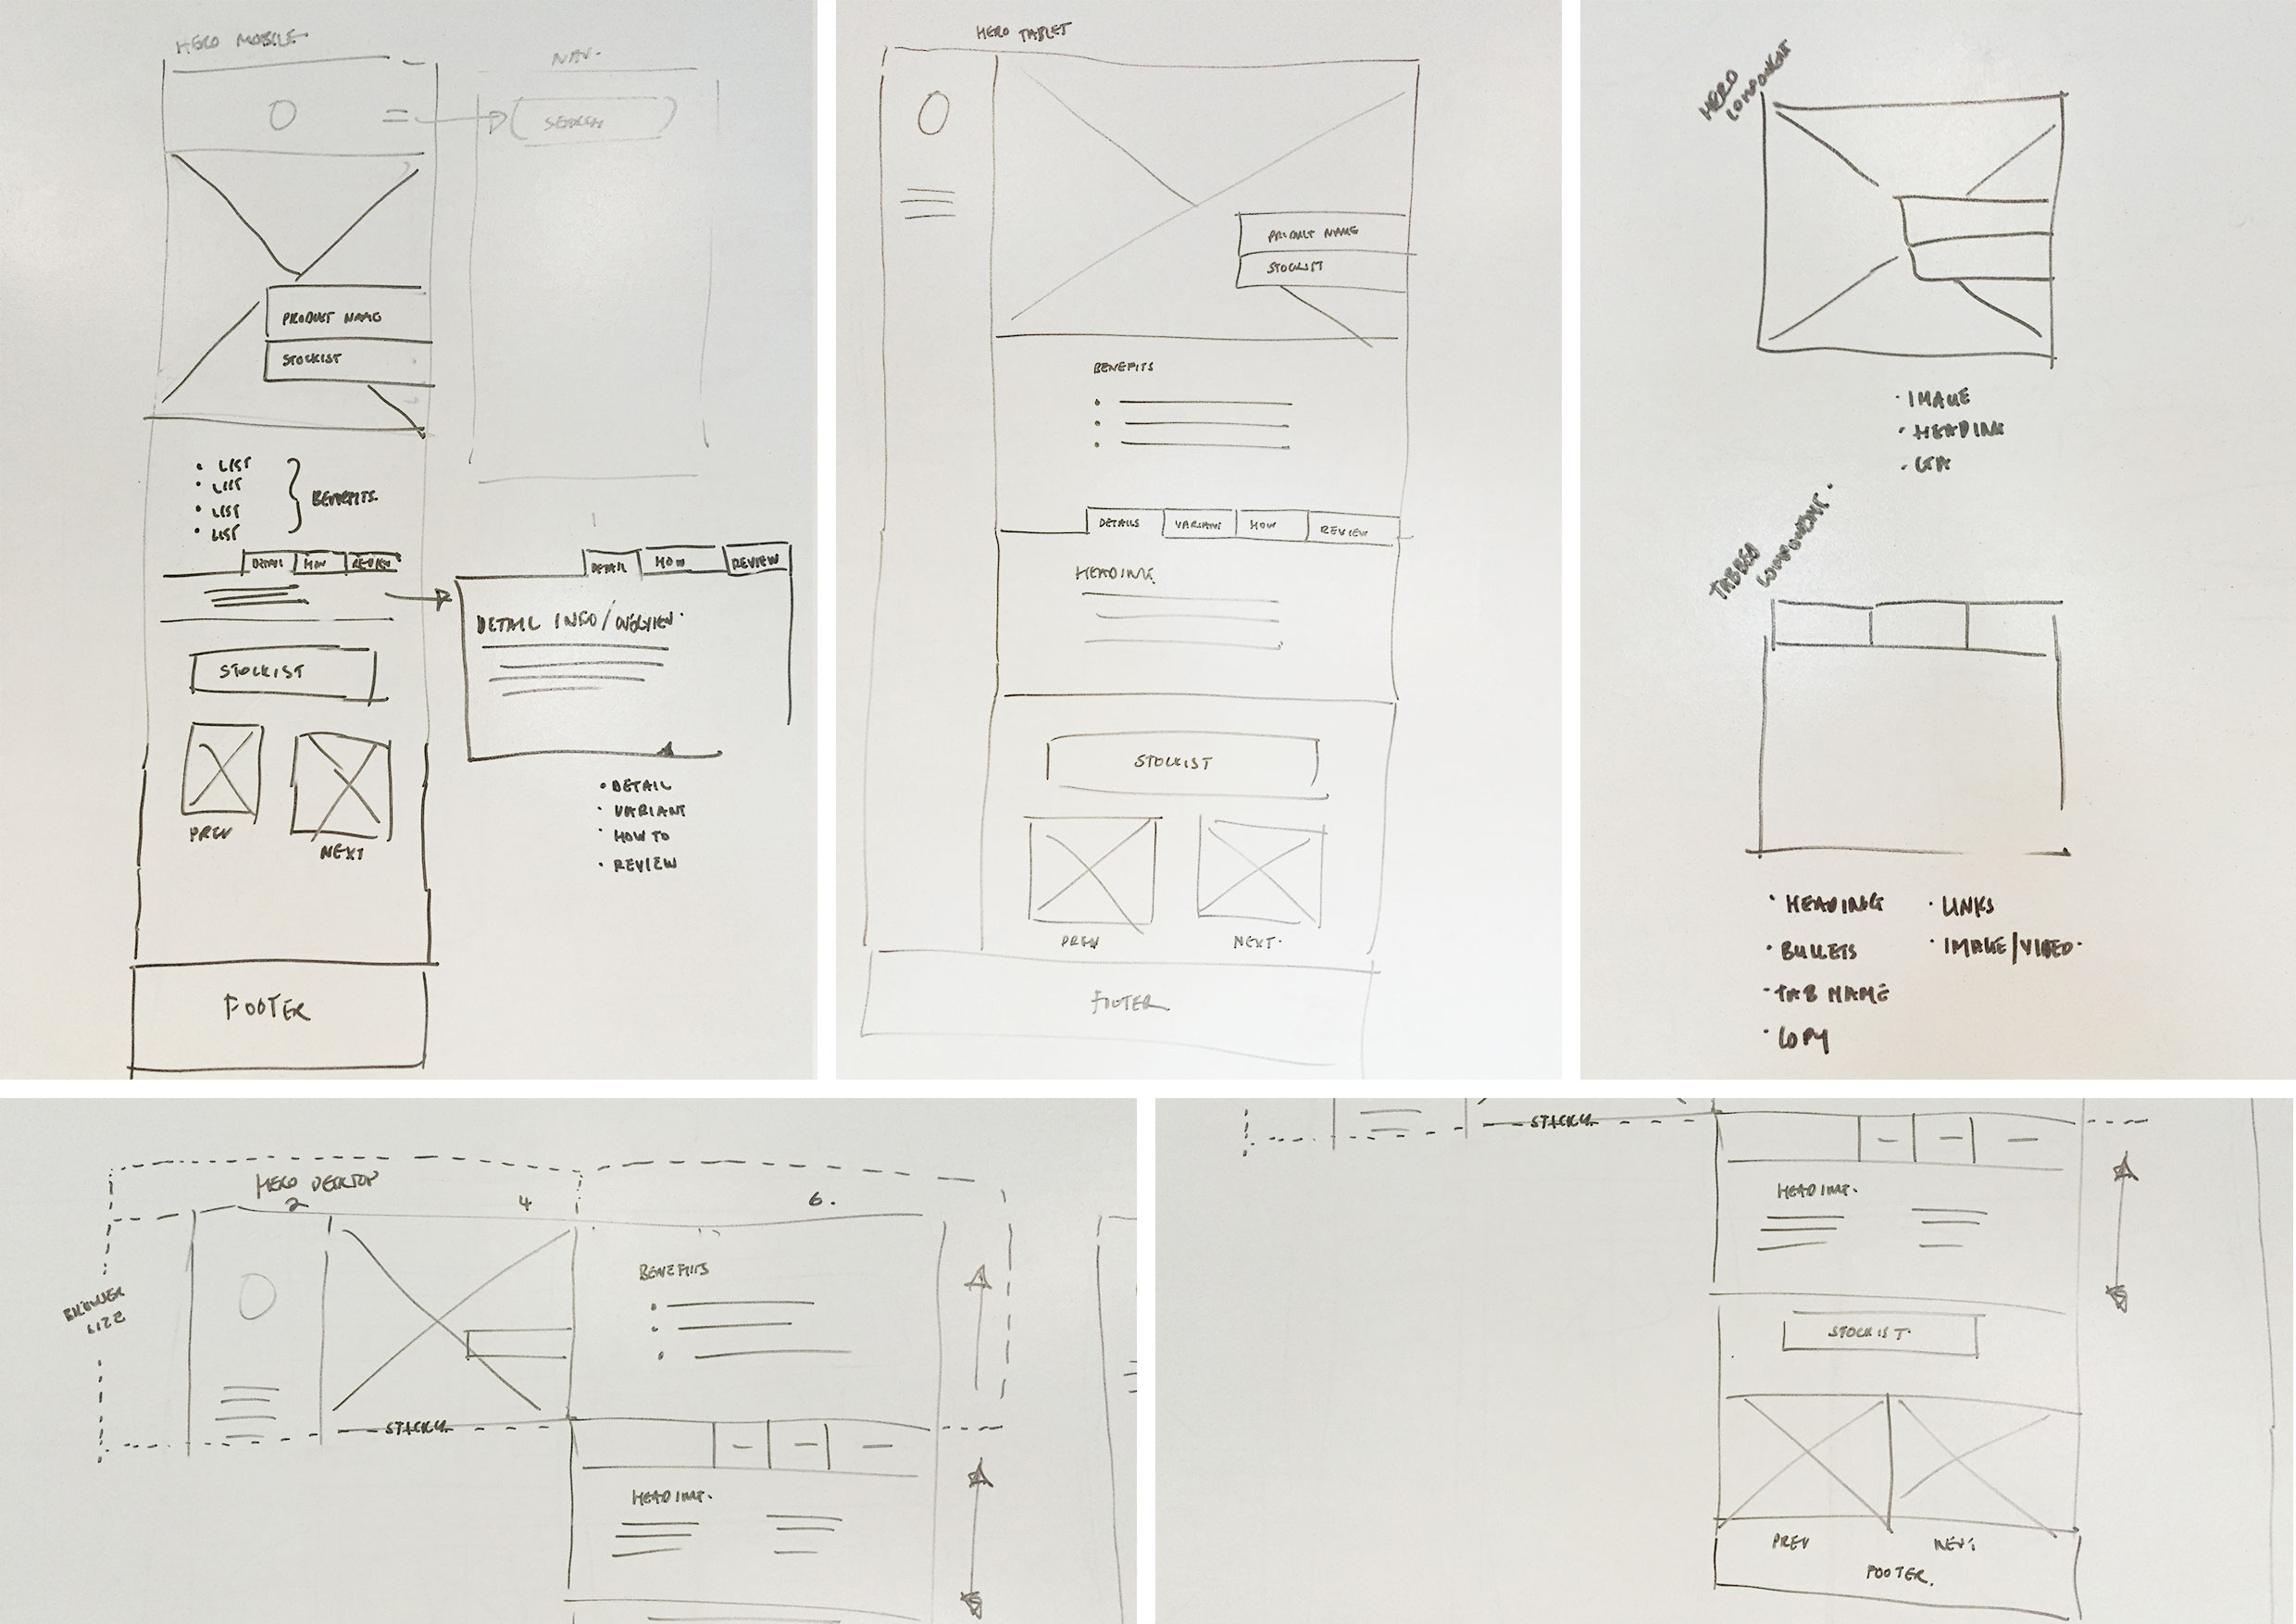 HERO MOBILE
NAV.
SEARCH
PRODUCT NAME
STOCKIST
• LIST
• LIST
• LIST
• LIST
BENEFITS
DETAIL HOW REVIEW
DETAIL HOW REVIEW
DETAIL INFO/OVERVIEW.
STOCKIST
PREV
NEXT
• DETAIL
• VARIANT
• HOW TO
• REVIEW
FOOTER
HERO TABLET
PRODUCT NAME
STOCKIST
BENEFITS
DETAILS VARIANT HOW REVIEW
HEADING
STOCKIST
PREV
NEXT.
FOOTER
HERO
COMPONENT
• IMAGE
• HEADING
• CTA
TABBED
COMPONENT.
• HEADING
• BULLETS
• TAB NAME
• COPY
• LINKS
• IMAGE/VIDEO.
HERO DESKTOP
2 4 6.
BROWSER
SIZE
BENEFITS
STICKY
HEADING.
STICKY
HEADING.
STOCKIST.
PREV
NEXT
FOOTER.